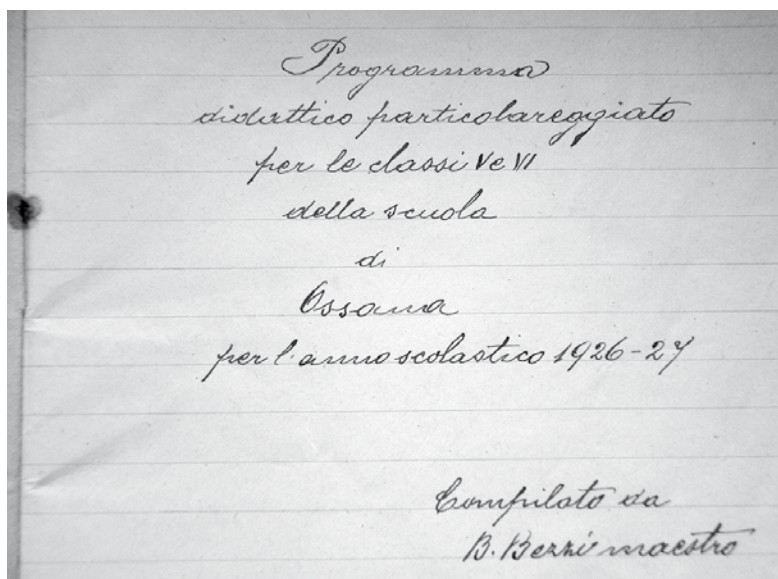 Programma
didattico particolareggiato
per le classi V e VI
della scuola
di
Ossana
per l'anno scolastico 1926-27
Compilato da
B. Bezzi maestro